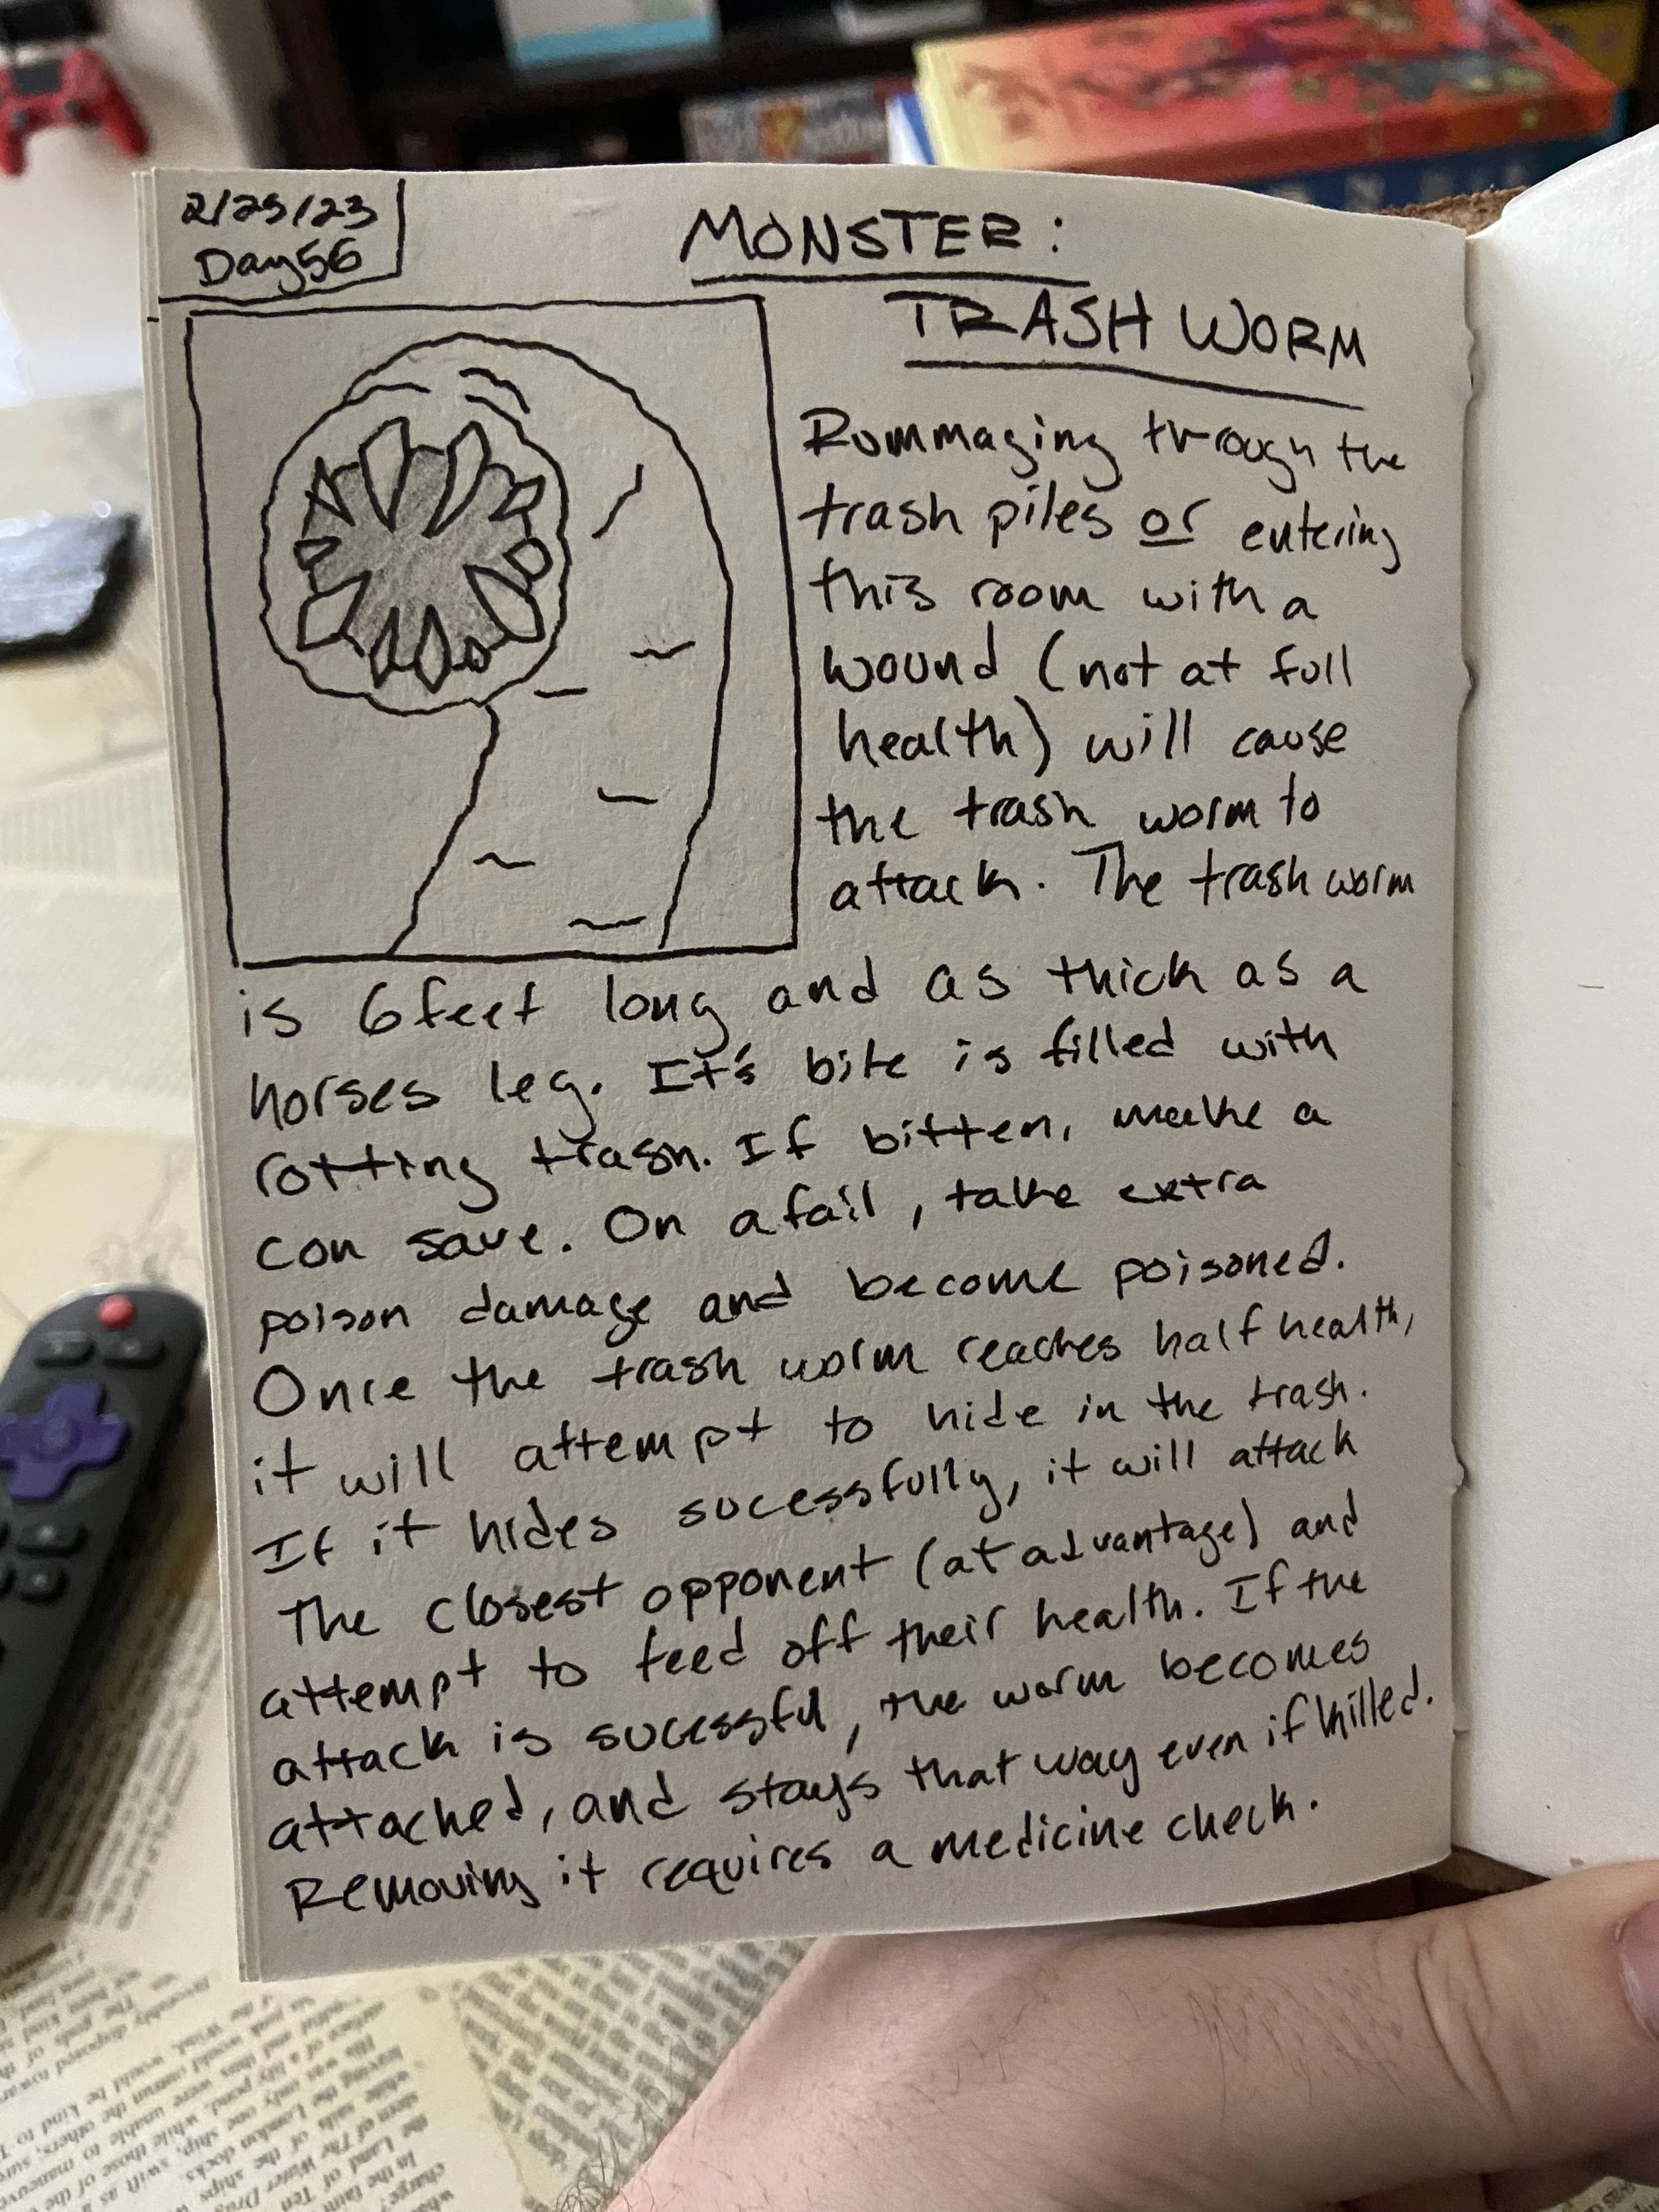 2/25/23
Day 56
MONSTER:
TRASH WORM
Rummaging through the
trash piles or entering
this room with a
wound (not at full
health) will cause
the trash worm to
attack. The trash worm
is 6 feet long and as thick as a
horses leg. It's bite is filled with
rotting trash. If bitten, make a
con save. On a fail, take extra
poison damage and become poisoned.
Once the trash worm reaches half health,
it will attempt to hide in the trash.
If it hides sucessfully, it will attack
The closest opponent (at advantage) and
attempt to feed off their health. If the
attack is sucessful, the worm becomes
attached, and stays that way even if killed.
Removing it requires a medicine check.